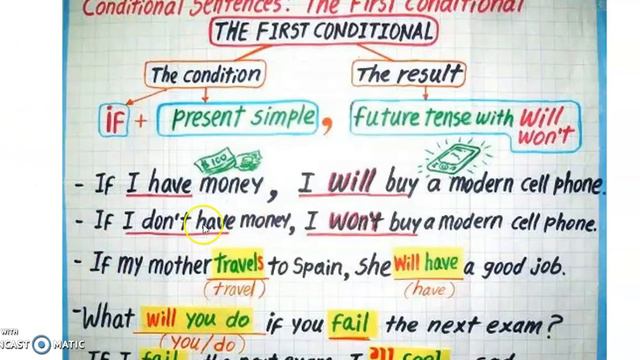 Conditional Sentences: The First Conditional
THE FIRST CONDITIONAL
The condition
The result
if + present simple, future tense with will
won't
$100
- If I have money, I will buy a modern cell phone.
- If I don't have money, I won't buy a modern cell phone.
- If my mother travels to Spain, She will have a good job.
(travel) (have)
- What will you do if you fail the next exam?
(you/do)
WITH
NCAST MATIC
If I fail the next exam, I